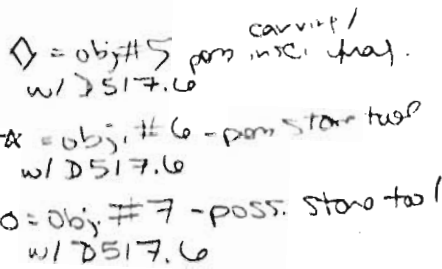 carving/
◇ = obj#5 poss insc. frag.
w/ D517.6
☆ = obj. #6 - poss stone tool
w/ D517.6
○ = obj. #7 - poss. stone tool
w/ D517.6